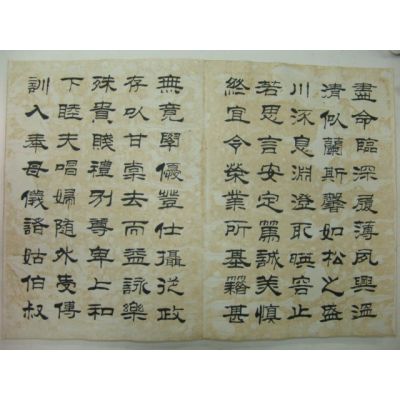 盡命臨深履薄夙興溫
清似蘭斯馨如松之盛
川流息淵澄取暎容止
若思言安定篤誠美慎
終宜令榮業所基籍甚
無竟學優登仕攝從政
存以甘棠去而益詠樂
殊貴賤禮別尊卑上和
下睦夫唱婦隨外受傅
訓入奉母儀諸姑伯叔